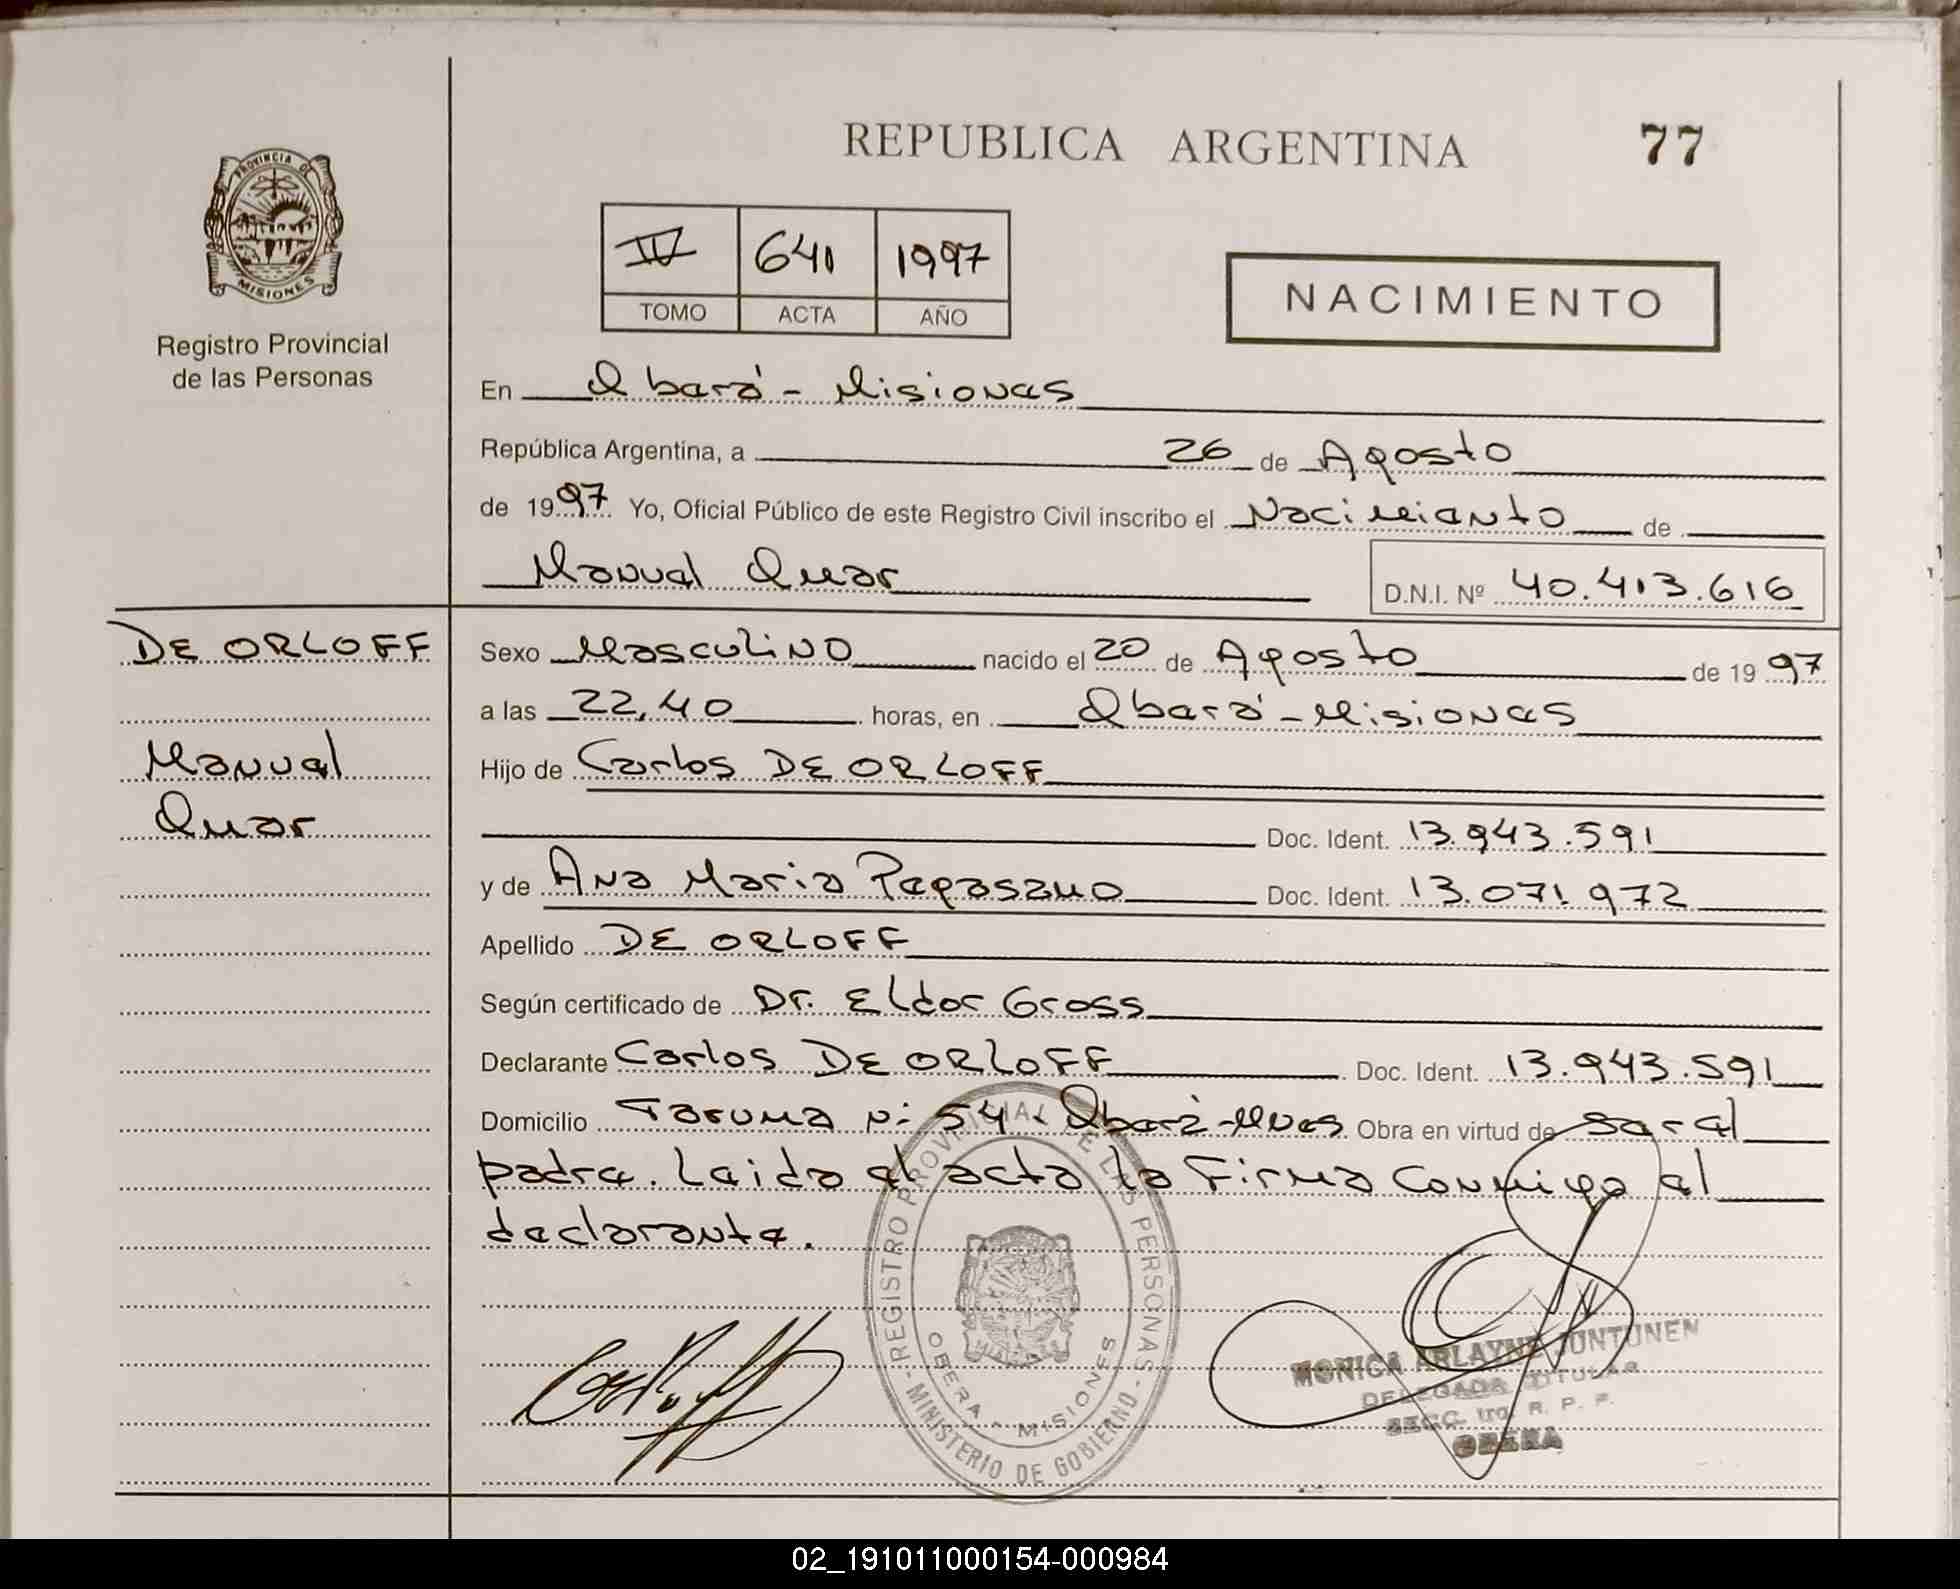 REPUBLICA ARGENTINA
77
PROVINCIA DE
MISIONES
Registro Provincial
de las Personas
IV 641 1997
TOMO ACTA AÑO
NACIMIENTO
En Oberá - Misiones
República Argentina, a 26 de Agosto
de 1997 Yo, Oficial Público de este Registro Civil inscribo el Nacimiento de
Manuel Omar
D.N.I. Nº 40.413.616
DE ORLOFF
Manuel
Omar
Sexo Masculino nacido el 20 de Agosto de 1997
a las 22,40 horas, en Oberá - Misiones
Hijo de Carlos DE ORLOFF
Doc. Ident. 13.943.591
y de Ana Maria Doc. Ident. 13.071.972
Apellido DE ORLOFF
Según certificado de Dr. Eldor Gross
Declarante Carlos DE ORLOFF Doc. Ident. 13.943.591
Domicilio Taruma Nº 54. Oberá - Mnes Obra en virtud de ser el
padre. Leida el acta la firma conmigo el
declarante.
REGISTRO PROVINCIAL DE LAS PERSONAS - MINISTERIO DE GOBIERNO -
OBERA - MISIONES
MONICA ARLAYNE JUNTUNEN
DELEGADA TITULAR
SECC. 1ra. R. P. P.
OBERA
02_191011000154-000984